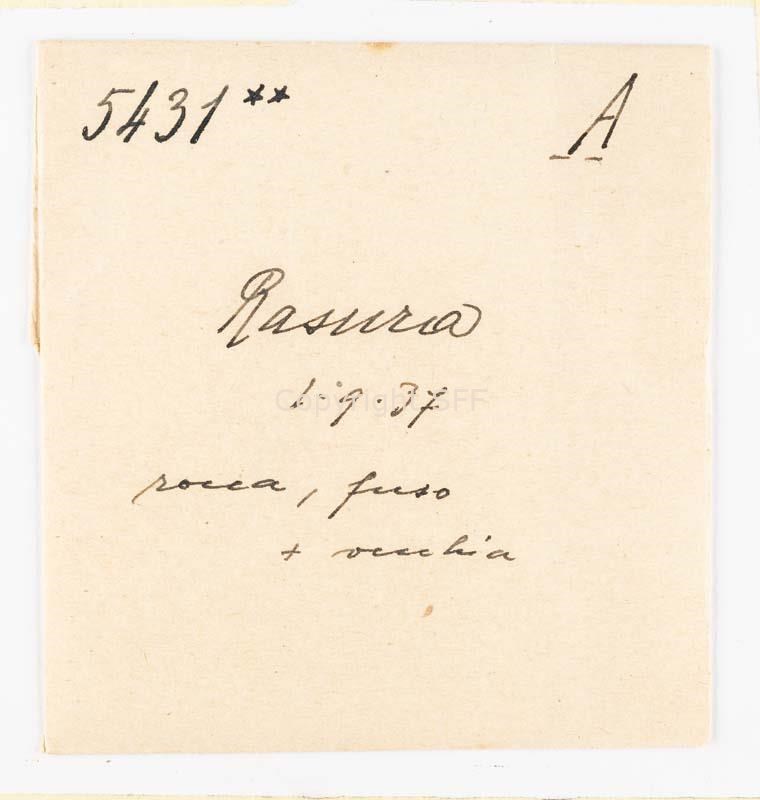 5431** A
Rasura
1·9·37
rocca, fuso
+ vecchia
Copyright SFF